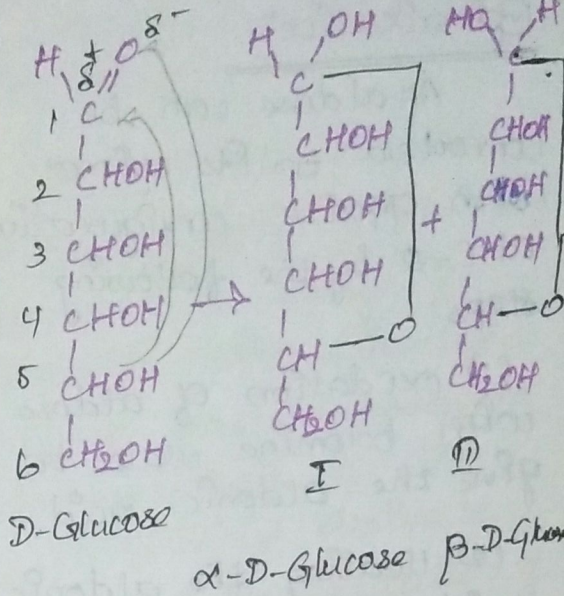 H δ+ O δ-
1 C
2 CHOH
3 CHOH
4 CHOH
5 CHOH
6 CH2OH
D-Glucose
H OH
C
CHOH
CHOH
CHOH
CH — O
CH2OH
I
α-D-Glucose
+
HO H
C
CHOH
CHOH
CHOH
CH — O
CH2OH
II
β-D-Glucose